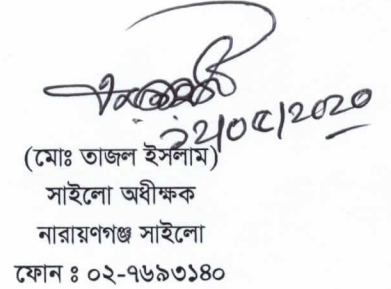 ১২/০৫/২০২০
(মোঃ তাজল ইসলাম)
সাইলো অধীক্ষক
নারায়ণগঞ্জ সাইলো
ফোন ঃ ০২-৭৬৯৩১৪০